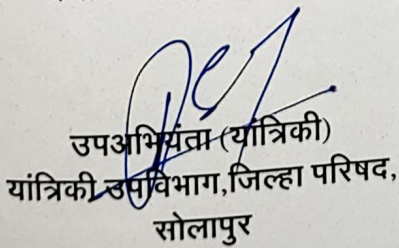 उपअभियंता (यांत्रिकी)
यांत्रिकी उपविभाग,जिल्हा परिषद,
सोलापुर